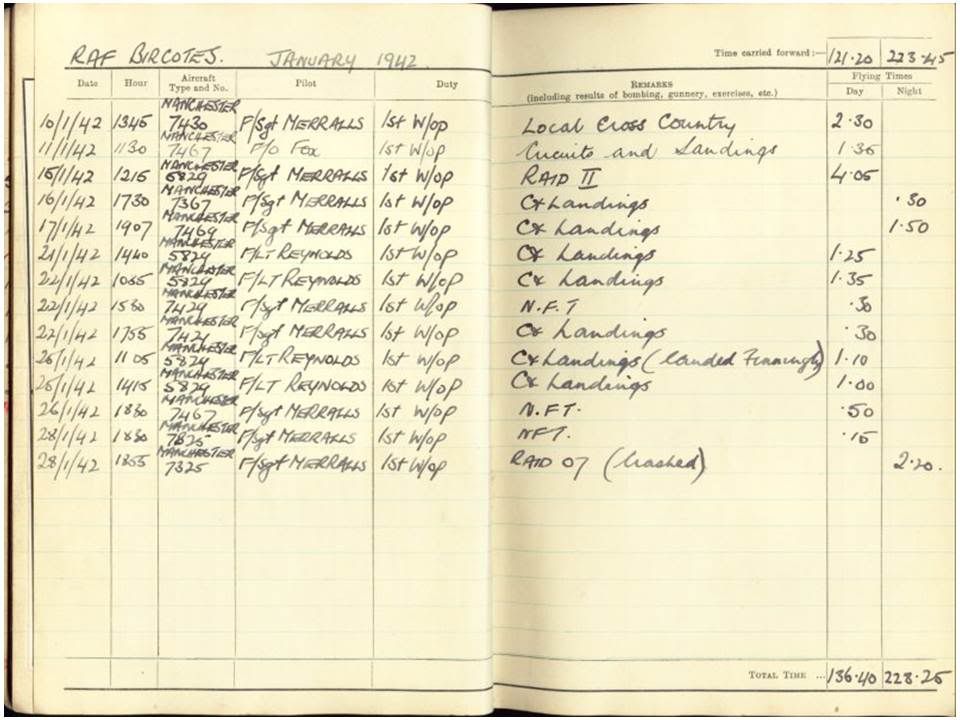 RAF BIRCOTES. JANUARY 1942. Time carried forward:— 121.20 223.45
Date Hour Aircraft Type and No. Pilot Duty REMARKS (including results of bombing, gunnery, exercises, etc.) Flying Times Day Night
10/1/42 1345 MANCHESTER 7430 F/Sgt MERRALLS 1st W/op Local Cross Country 2.30
11/1/42 1130 MANCHESTER 7467 F/O Fox 1st W/op Circuits and Landings 1.35
15/1/42 1215 MANCHESTER 5829 F/Sgt MERRALLS 1st W/op RAID II 4.05
16/1/42 1730 MANCHESTER 7367 F/Sgt MERRALLS 1st W/op C & Landings .30
17/1/42 1907 MANCHESTER 7469 F/Sgt MERRALLS 1st W/op C & Landings 1.50
21/1/42 1440 MANCHESTER 5829 F/LT REYNOLDS 1st W/op C & Landings 1.25
22/1/42 MANCHESTER 5829 F/LT REYNOLDS 1st W/op C & Landings 1.35
22/1/42 1530 MANCHESTER 7429 F/Sgt MERRALLS 1st W/op N.F.T .30
22/1/42 1755 MANCHESTER F/Sgt MERRALLS 1st W/op C & Landings .30
25/1/42 1105 MANCHESTER 5829 F/LT REYNOLDS 1st W/op C & Landings (landed Finningly) 1.10
25/1/42 1415 MANCHESTER 5829 F/LT REYNOLDS 1st W/op C & Landings 1.00
26/1/42 1830 MANCHESTER 7467 F/Sgt MERRALLS 1st W/op N.F.T. .50
28/1/42 1830 MANCHESTER 7325 F/Sgt MERRALLS 1st W/op NFT. .15
28/1/42 1855 MANCHESTER 7325 F/Sgt MERRALLS 1st W/op RAID 07 (Crashed) 2.20.
TOTAL TIME ... 136.40 228.25